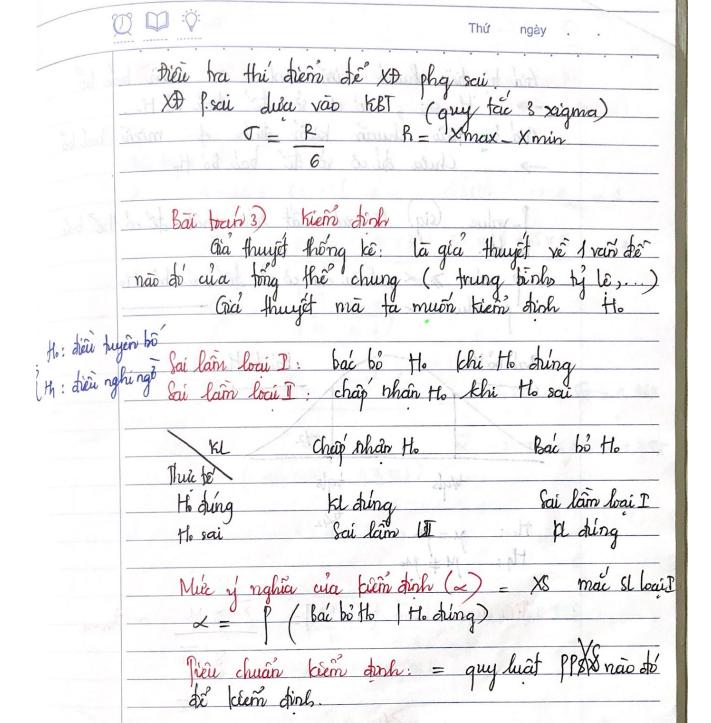 Thứ ngày . .
Điều tra thí điểm để XĐ phg sai.
XĐ p.sai dựa vào KBT (quy tắc 3 xigma)
σ = R/6 R = Xmax - Xmin
Bài toán 3) Kiểm định
Giả thuyết thống kê: là giả thuyết về 1 vấn đề
nào đó của tổng thể chung ( trung bình, tỷ lệ,...)
Giả thuyết mà ta muốn kiểm định H₀
H₀: điều tuyên bố
H₁: điều nghi ngờ
Sai lầm loại I: bác bỏ H₀ khi H₀ đúng
Sai lầm loại II: chấp nhận H₀ khi H₀ sai
KL Chấp nhận H₀ Bác bỏ H₀
Thực tế
H₀ đúng KL đúng Sai lầm loại I
H₀ sai Sai lầm LII KL đúng
Mức ý nghĩa của kiểm định (α) = XS mắc SL loại I
α = P ( Bác bỏ H₀ | H₀ đúng)
Tiêu chuẩn kiểm định: = quy luật PPXS nào đó
để kiểm định.